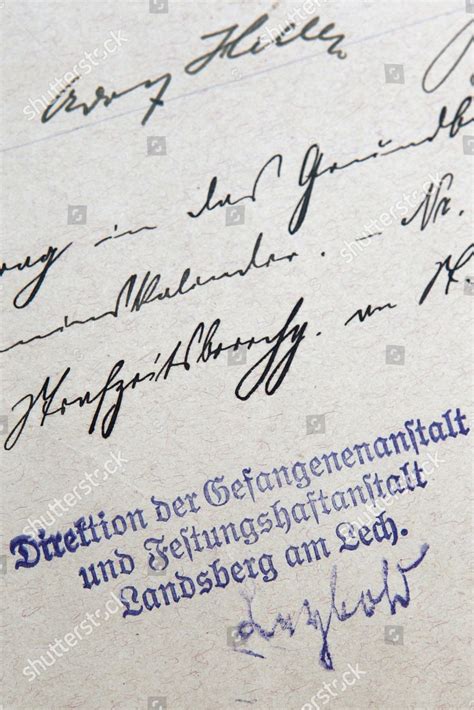 Adolf Hitler
trag in das Grundb
minskalender. – Nr.
Strafzeitsberechg. an St.
Direktion der Gefangenenanstalt
und Festungshaftanstalt
Landsberg am Lech.
shutterstock